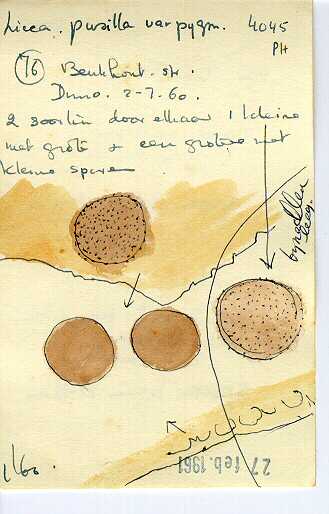 Licea. pusilla var pygm. 4045
PH
76 Beukhout. str.
Duno. 2-7-60.
2 soorten door elkaar 1 kleine
met grote + een grotere met
kleine sporen
bijna allen
leeg.
1/60.
27 feb. 1961